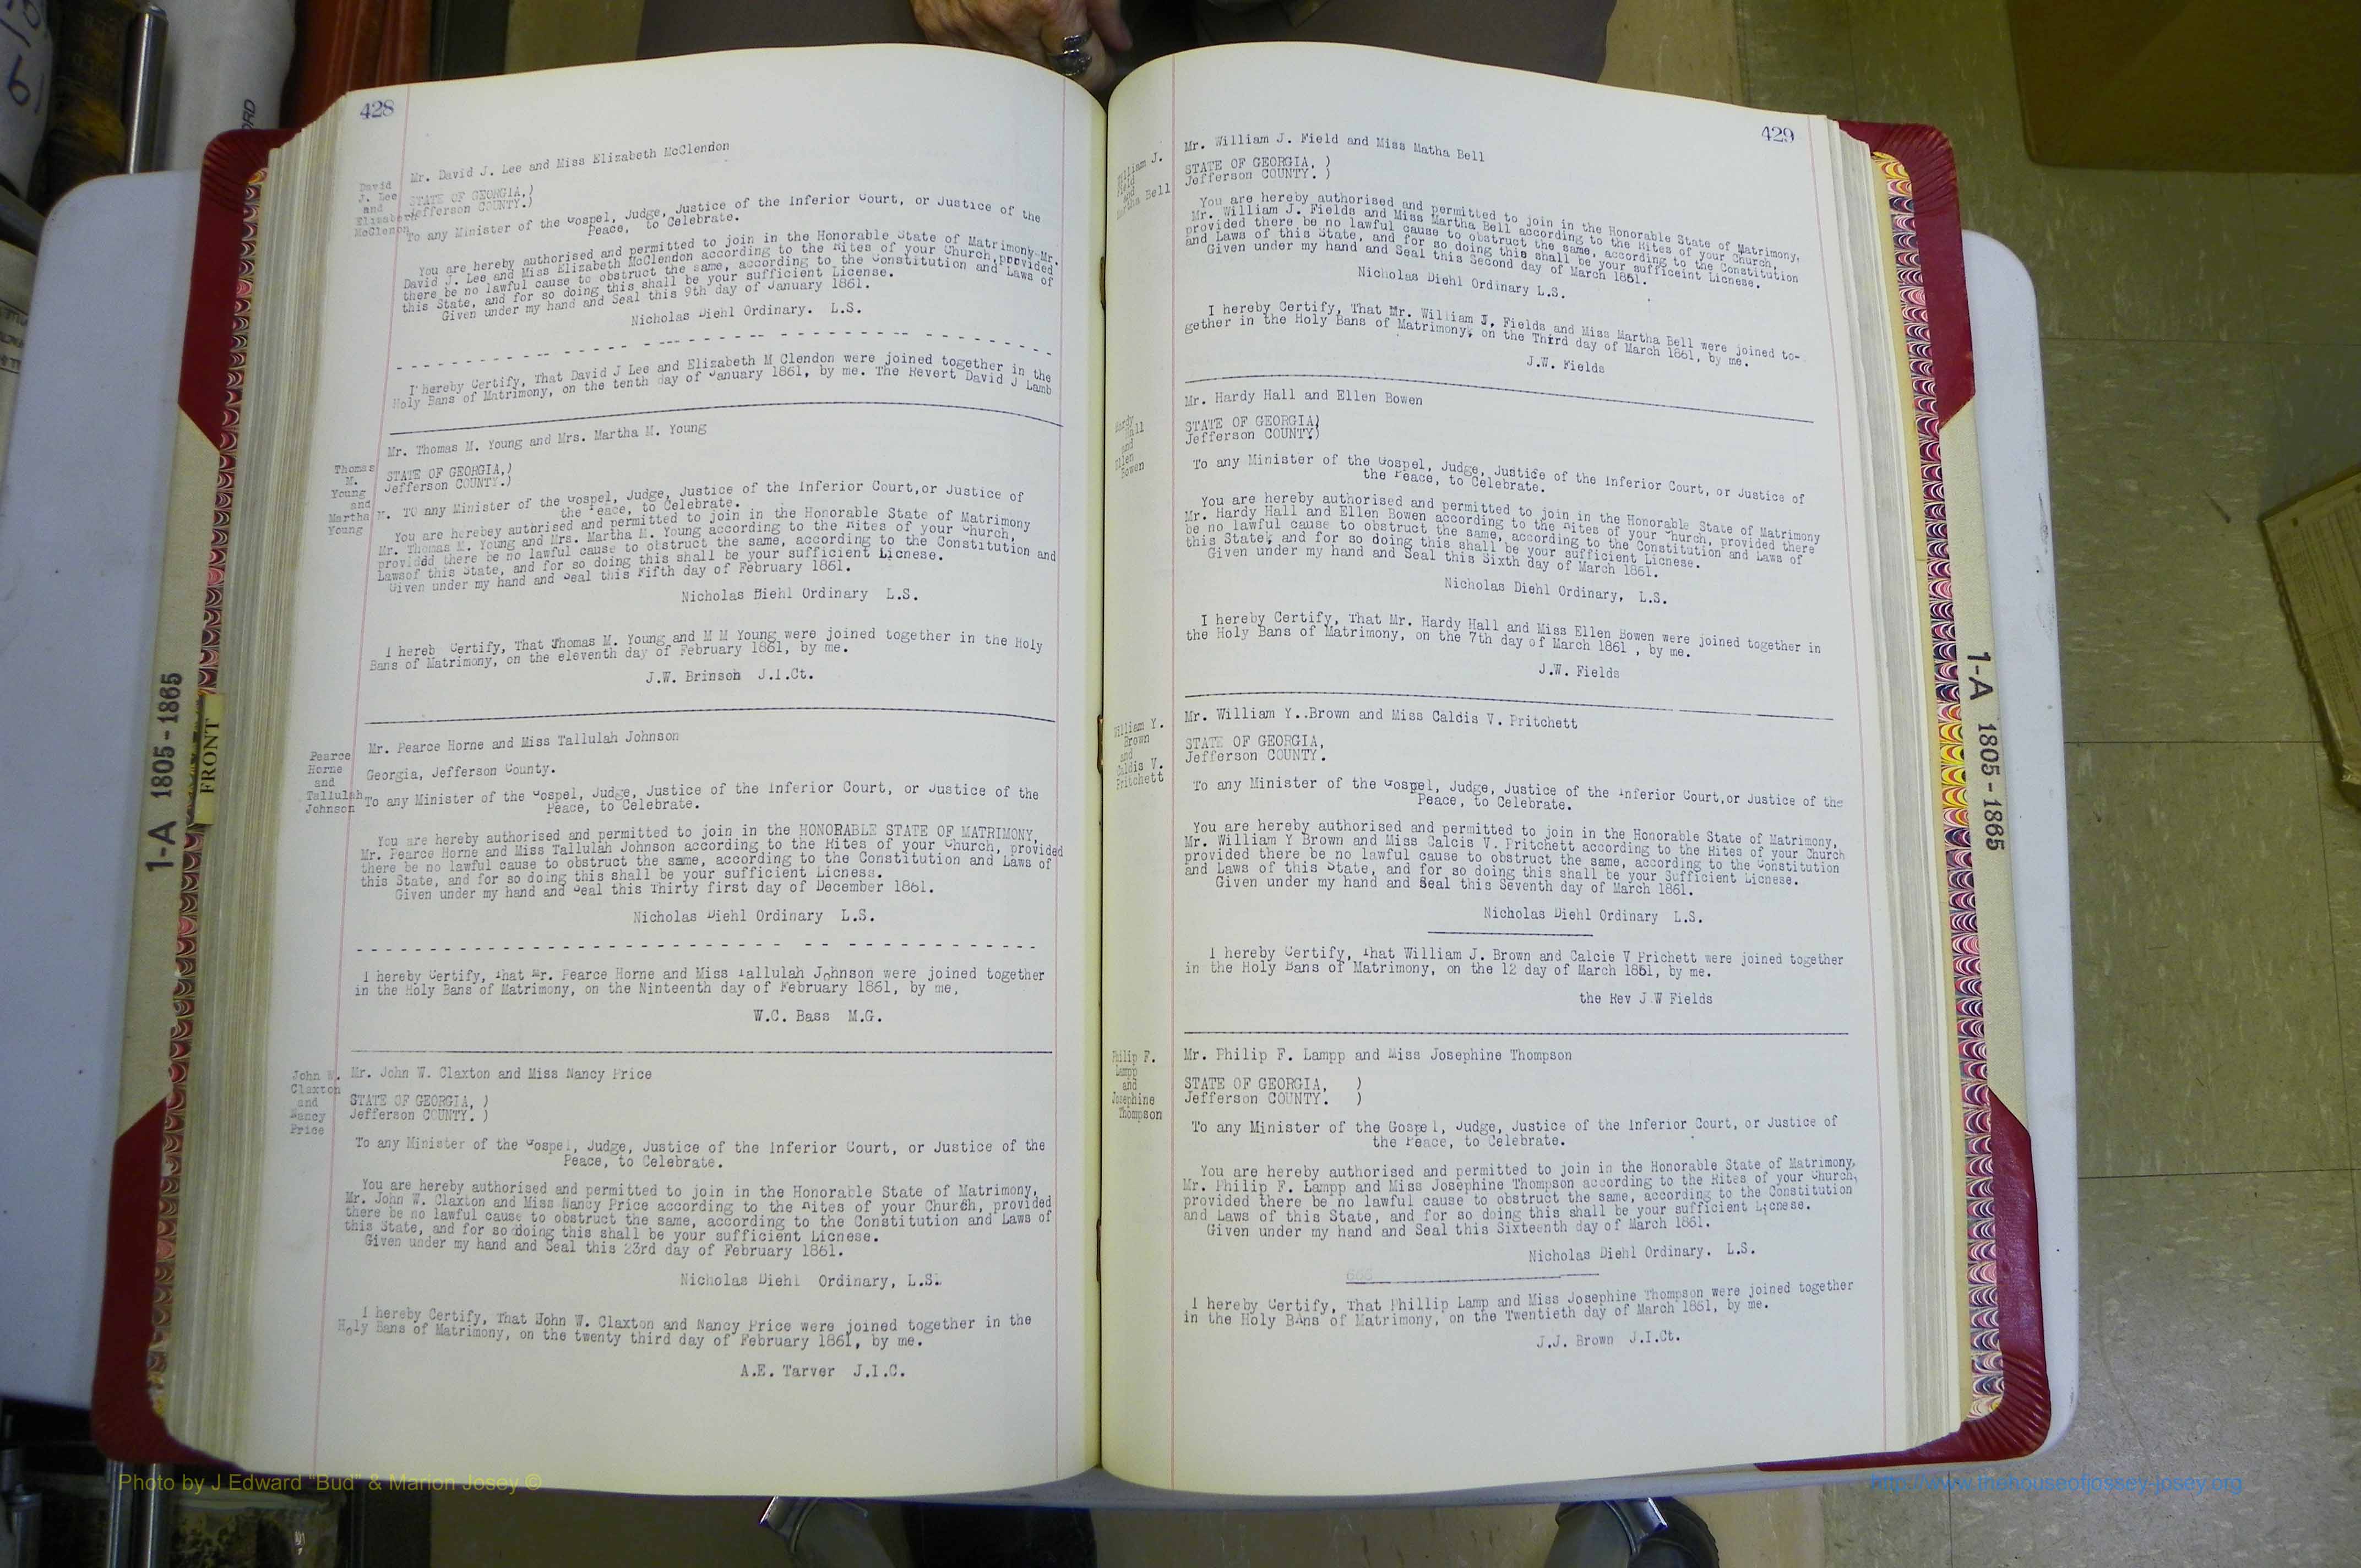 428
Mr. David J. Lee and Miss Elizabeth McClendon
David
J. Lee
and
Elizabeth
McClenon
STATE OF GEORGIA.)
Jefferson COUNTY.)
To any Minister of the Gospel, Judge, Justice of the Inferior Court, or Justice of the
Peace, to Celebrate.
You are hereby authorised and permitted to join in the Honorable State of Matrimony-Mr.
David J. Lee and Miss Elizabeth McClendon according to the Rites of your Church,provided
there be no lawful cause to obstruct the same, according to the Constitution and Laws of
this State, and for so doing this shall be your sufficient License.
Given under my hand and Seal this 9th day of January 1861.
Nicholas Diehl Ordinary. L.S.
I hereby Certify, That David J Lee and Elizabeth M Clendon were joined together in the
Holy Bans of Matrimony, on the tenth day of January 1861, by me. The Revert David J Lamb
Mr. Thomas M. Young and Mrs. Martha M. Young
Thomas
M.
Young
and
Martha M.
Young
STATE OF GEORGIA,)
Jefferson COUNTY.)
TO any Minister of the Gospel, Judge, Justice of the Inferior Court,or Justice of
the Peace, to Celebrate.
You are herebey autbrised and permitted to join in the Honorable State of Matrimony
Mr. Thomas M. Young and Mrs. Martha M. Young according to the Rites of your Church,
provided there be no lawful cause to obstruct the same, according to the Constitution and
Lawsof this State, and for so doing this shall be your sufficient Licnese.
Given under my hand and Seal this Fifth day of February 1861.
Nicholas Diehl Ordinary L.S.
I hereb Certify, That Thomas M. Young and M M Young were joined together in the Holy
Bans of Matrimony, on the eleventh day of February 1861, by me.
J.W. Brinson J.I.Ct.
Mr. Pearce Horne and Miss Tallulah Johnson
Pearce
Horne
and
Tallulah
Johnson
Georgia, Jefferson County.
To any Minister of the Gospel, Judge, Justice of the Inferior Court, or Justice of the
Peace, to Celebrate.
You are hereby authorised and permitted to join in the HONORABLE STATE OF MATRIMONY,
Mr. Pearce Horne and Miss Tallulah Johnson according to the Rites of your Church, provided
there be no lawful cause to obstruct the same, according to the Constitution and Laws of
this State, and for so doing this shall be your sufficient Licness.
Given under my hand and Seal this Thirty first day of December 1861.
Nicholas Diehl Ordinary L.S.
I hereby Certify, That Mr. Pearce Horne and Miss Tallulah Johnson were joined together
in the Holy Bans of Matrimony, on the Ninteenth day of February 1861, by me,
W.C. Bass M.G.
Mr. John W. Claxton and Miss Nancy Price
John W.
Claxton
and
Nancy
Price
STATE OF GEORGIA, )
Jefferson COUNTY. )
To any Minister of the Gospel, Judge, Justice of the Inferior Court, or Justice of the
Peace, to Celebrate.
You are hereby authorised and permitted to join in the Honorable State of Matrimony,
Mr. John W. Claxton and Miss Nancy Price according to the Rites of your Church, provided
there be no lawful cause to obstruct the same, according to the Constitution and Laws of
this State, and for so doing this shall be your sufficient Licnese.
Given under my hand and Seal this 23rd day of February 1861.
Nicholas Diehl Ordinary, L.S.
I hereby Certify, That John W. Claxton and Nancy Price were joined together in the
Holy Bans of Matrimony, on the twenty third day of February 1861, by me.
A.E. Tarver J.I.C.
429
Mr. William J. Field and Miss Matha Bell
William J.
Field
and
Martha Bell
STATE OF GEORGIA, )
Jefferson COUNTY. )
You are hereby authorised and permitted to join in the Honorable State of Matrimony,
Mr. William J. Fields and Miss Martha Bell according to the Rites of your Church,
provided there be no lawful cause to obstruct the same, according to the Constitution
and Laws of this State, and for so doing this shall be your sufficeint Licnese.
Given under my hand and Seal this Second day of March 1861.
Nicholas Diehl Ordinary L.S.
I hereby Certify, That Mr. William J. Fields and Miss Martha Bell were joined to-
gether in the Holy Bans of Matrimony, on the Third day of March 1861, by me.
J.W. Fields
Mr. Hardy Hall and Ellen Bowen
Hardy
Hall
and
Ellen
Bowen
STATE OF GEORGIA)
Jefferson COUNTY)
To any Minister of the Gospel, Judge, Justice of the Inferior Court, or Justice of
the Peace, to Celebrate.
You are hereby authorised and permitted to join in the Honorable State of Matrimony
Mr. Hardy Hall and Ellen Bowen according to the Rites of your Church, provided there
be no lawful cause to obstruct the same, according to the Constitution and Laws of
this State, and for so doing this shall be your sufficient Licnese.
Given under my hand and Seal this Sixth day of March 1861.
Nicholas Diehl Ordinary, L.S.
I hereby Certify, That Mr. Hardy Hall and Miss Ellen Bowen were joined together in
the Holy Bans of Matrimony, on the 7th day of March 1861 , by me.
J.W. Fields
Mr. William Y..Brown and Miss Caldis V. Pritchett
William Y.
Brown
and
Caldis V.
Pritchett
STATE OF GEORGIA,
Jefferson COUNTY.
To any Minister of the Gospel, Judge, Justice of the Inferior Court,or Justice of the
Peace, to Celebrate.
You are hereby authorised and permitted to join in the Honorable State of Matrimony,
Mr. William Y Brown and Miss Calcis V. Pritchett according to the Rites of your Church
provided there be no lawful cause to obstruct the same, according to the Constitution
and Laws of this State, and for so doing this shall be your Sufficient Licnese.
Given under my hand and Seal this Seventh day of March 1861.
Nicholas Diehl Ordinary L.S.
I hereby Certify, That William J. Brown and Calcie V Prichett were joined together
in the Holy Bans of Matrimony, on the 12 day of March 1861, by me.
the Rev J W Fields
Mr. Philip F. Lampp and Miss Josephine Thompson
Philip F.
Lampp
and
Josephine
Thompson
STATE OF GEORGIA, )
Jefferson COUNTY. )
To any Minister of the Gospel, Judge, Justice of the Inferior Court, or Justice of
the Peace, to Celebrate.
You are hereby authorised and permitted to join in the Honorable State of Matrimony,
Mr. Philip F. Lampp and Miss Josephine Thompson according to the Rites of your Church,
provided there be no lawful cause to obstruct the same, according to the Constitution
and Laws of this State, and for so doing this shall be your sufficient Licnese.
Given under my hand and Seal this Sixteenth day of March 1861.
Nicholas Diehl Ordinary. L.S.
I hereby Certify, That Phillip Lamp and Miss Josephine Thompson were joined together
in the Holy Bans of Matrimony, on the Twentieth day of March 1861, by me.
J.J. Brown J.I.Ct.
1-A 1805-1865
FRONT
1-A 1805-1865
Photo by J Edward "Bud" & Marion Josey ©
http://www.thehouseofjossey-josey.org